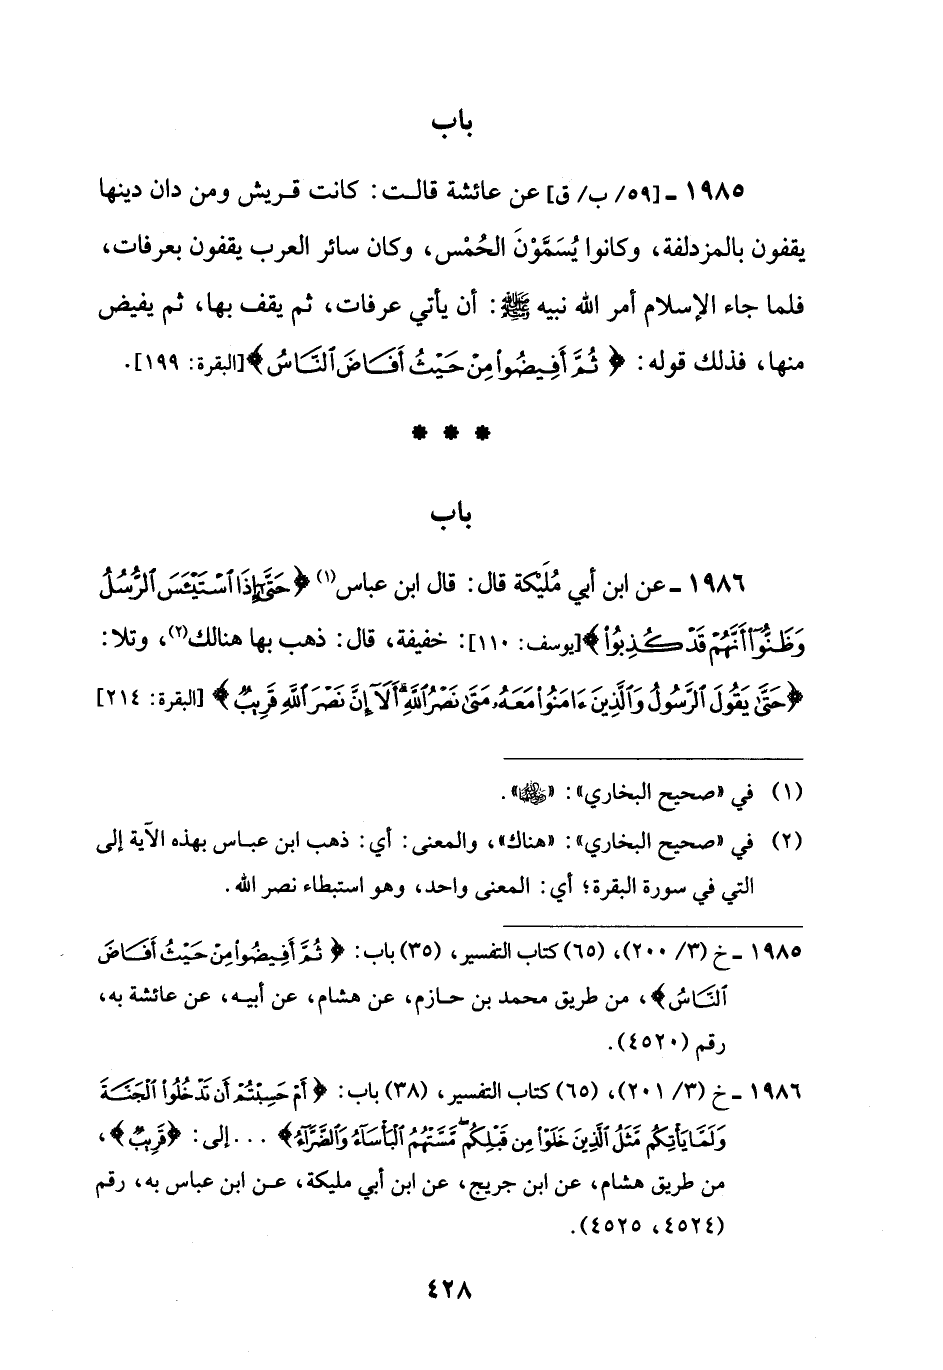 باب
١٩٨٥ - [٥٩/ ب/ ق] عن عائشة قالت: كانت قريش ومن دان دينها
يقفون بالمزدلفة، وكانوا يُسَمَّوْنَ الحُمْس، وكان سائر العرب يقفون بعرفات،
فلما جاء الإسلام أمر الله نبيه ﷺ: أن يأتي عرفات، ثم يقف بها، ثم يفيض
منها، فذلك قوله: ﴿ثُمَّ أَفِيضُوا۟ مِنْ حَيْثُ أَفَاضَ ٱلنَّاسُ﴾[البقرة: ١٩٩].
* * *
باب
١٩٨٦ - عن ابن أبي مُلَيْكة قال: قال ابن عباس(١) ﴿حَتَّىٰٓ إِذَا ٱسْتَيْـَٔسَ ٱلرُّسُلُ
وَظَنُّوٓا۟ أَنَّهُمْ قَدْ كُذِبُوا۟﴾[يوسف: ١١٠]: خفيفة، قال: ذهب بها هنالك(٢)، وتلا:
﴿حَتَّىٰ يَقُولَ ٱلرَّسُولُ وَٱلَّذِينَ ءَامَنُوا۟ مَعَهُۥ مَتَىٰ نَصْرُ ٱللَّهِ ۗ أَلَآ إِنَّ نَصْرَ ٱللَّهِ قَرِيبٌ﴾ [البقرة: ٢١٤]
(١) في «صحيح البخاري»: «».
(٢) في «صحيح البخاري»: «هناك»، والمعنى: أي: ذهب ابن عباس بهذه الآية إلى
التي في سورة البقرة؛ أي: المعنى واحد، وهو استبطاء نصر الله.
١٩٨٥ - خ (٣/ ٢٠٠)، (٦٥) كتاب التفسير، (٣٥) باب: ﴿ثُمَّ أَفِيضُوا۟ مِنْ حَيْثُ أَفَاضَ
ٱلنَّاسُ﴾، من طريق محمد بن حازم، عن هشام، عن أبيه، عن عائشة به،
رقم (٤٥٢٠).
١٩٨٦ - خ (٣/ ٢٠١)، (٦٥) كتاب التفسير، (٣٨) باب: ﴿أَمْ حَسِبْتُمْ أَن تَدْخُلُوا۟ ٱلْجَنَّةَ
وَلَمَّا يَأْتِكُم مَّثَلُ ٱلَّذِينَ خَلَوْا۟ مِن قَبْلِكُم ۖ مَّسَّتْهُمُ ٱلْبَأْسَآءُ وَٱلضَّرَّآءُ﴾ ... إلى: ﴿قَرِيبٌ﴾،
من طريق هشام، عن ابن جريج، عن ابن أبي مليكة، عن ابن عباس به، رقم
(٤٥٢٤، ٤٥٢٥).
٤٢٨